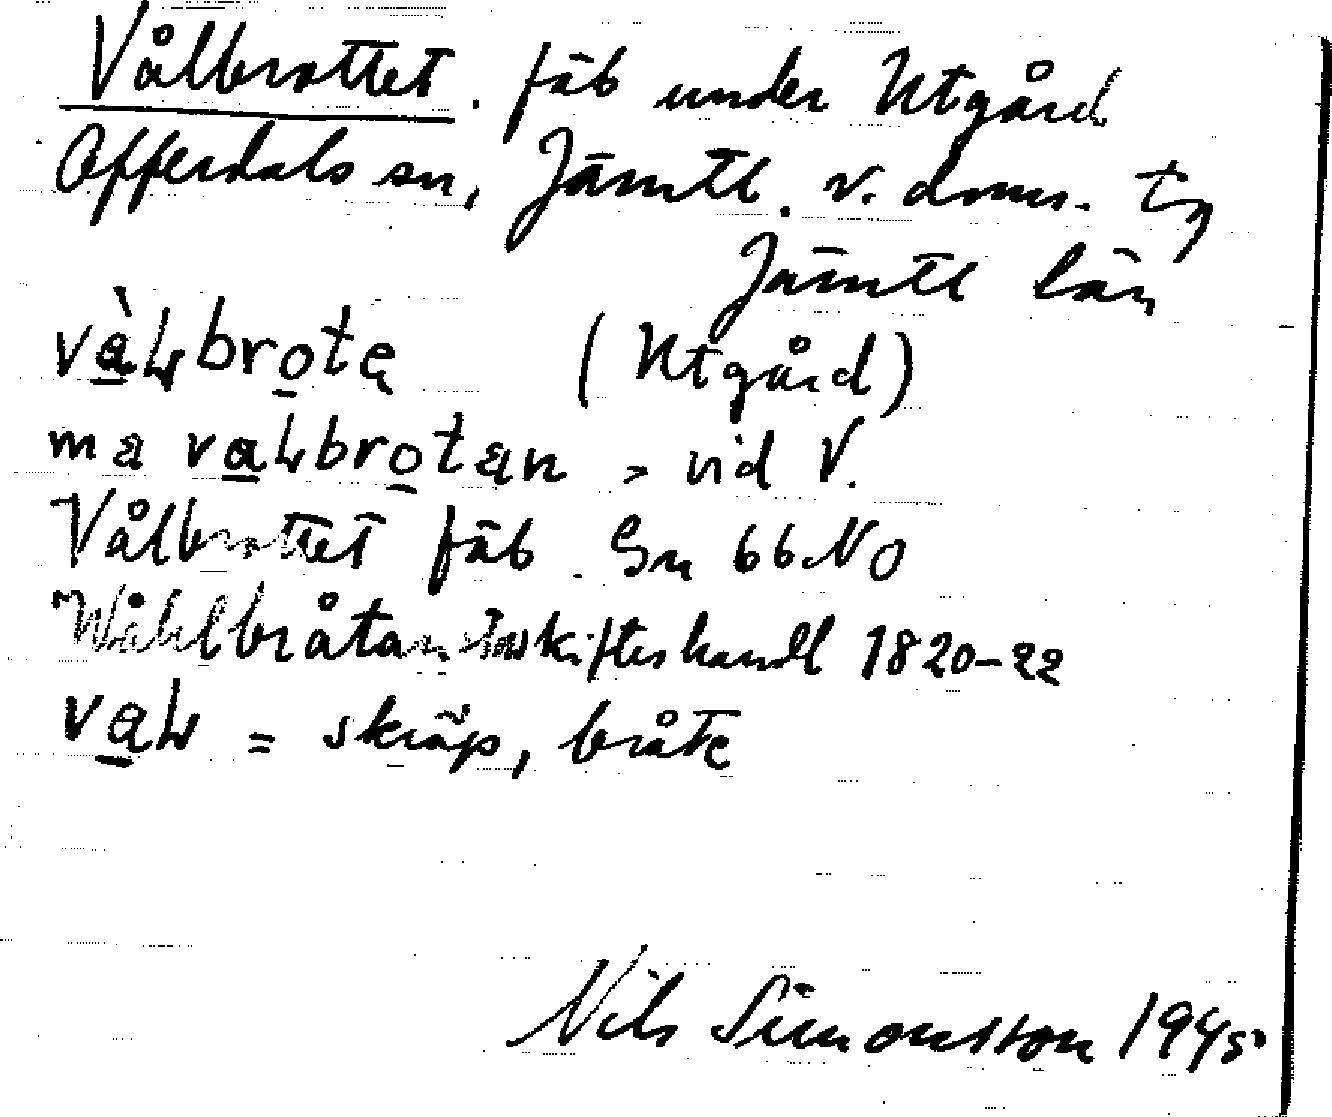 Vålbrottet. fäb under Utgård
Offerdals sn, Jämtl. v. doms. tg
Jämtl län
(Utgård)
vid V.
Vålbrottet fäb. Gn 66 NO
Wåhlbråtan storskifteshandl 1820-22
= skräp, bråte
Nils Simonsson 1945